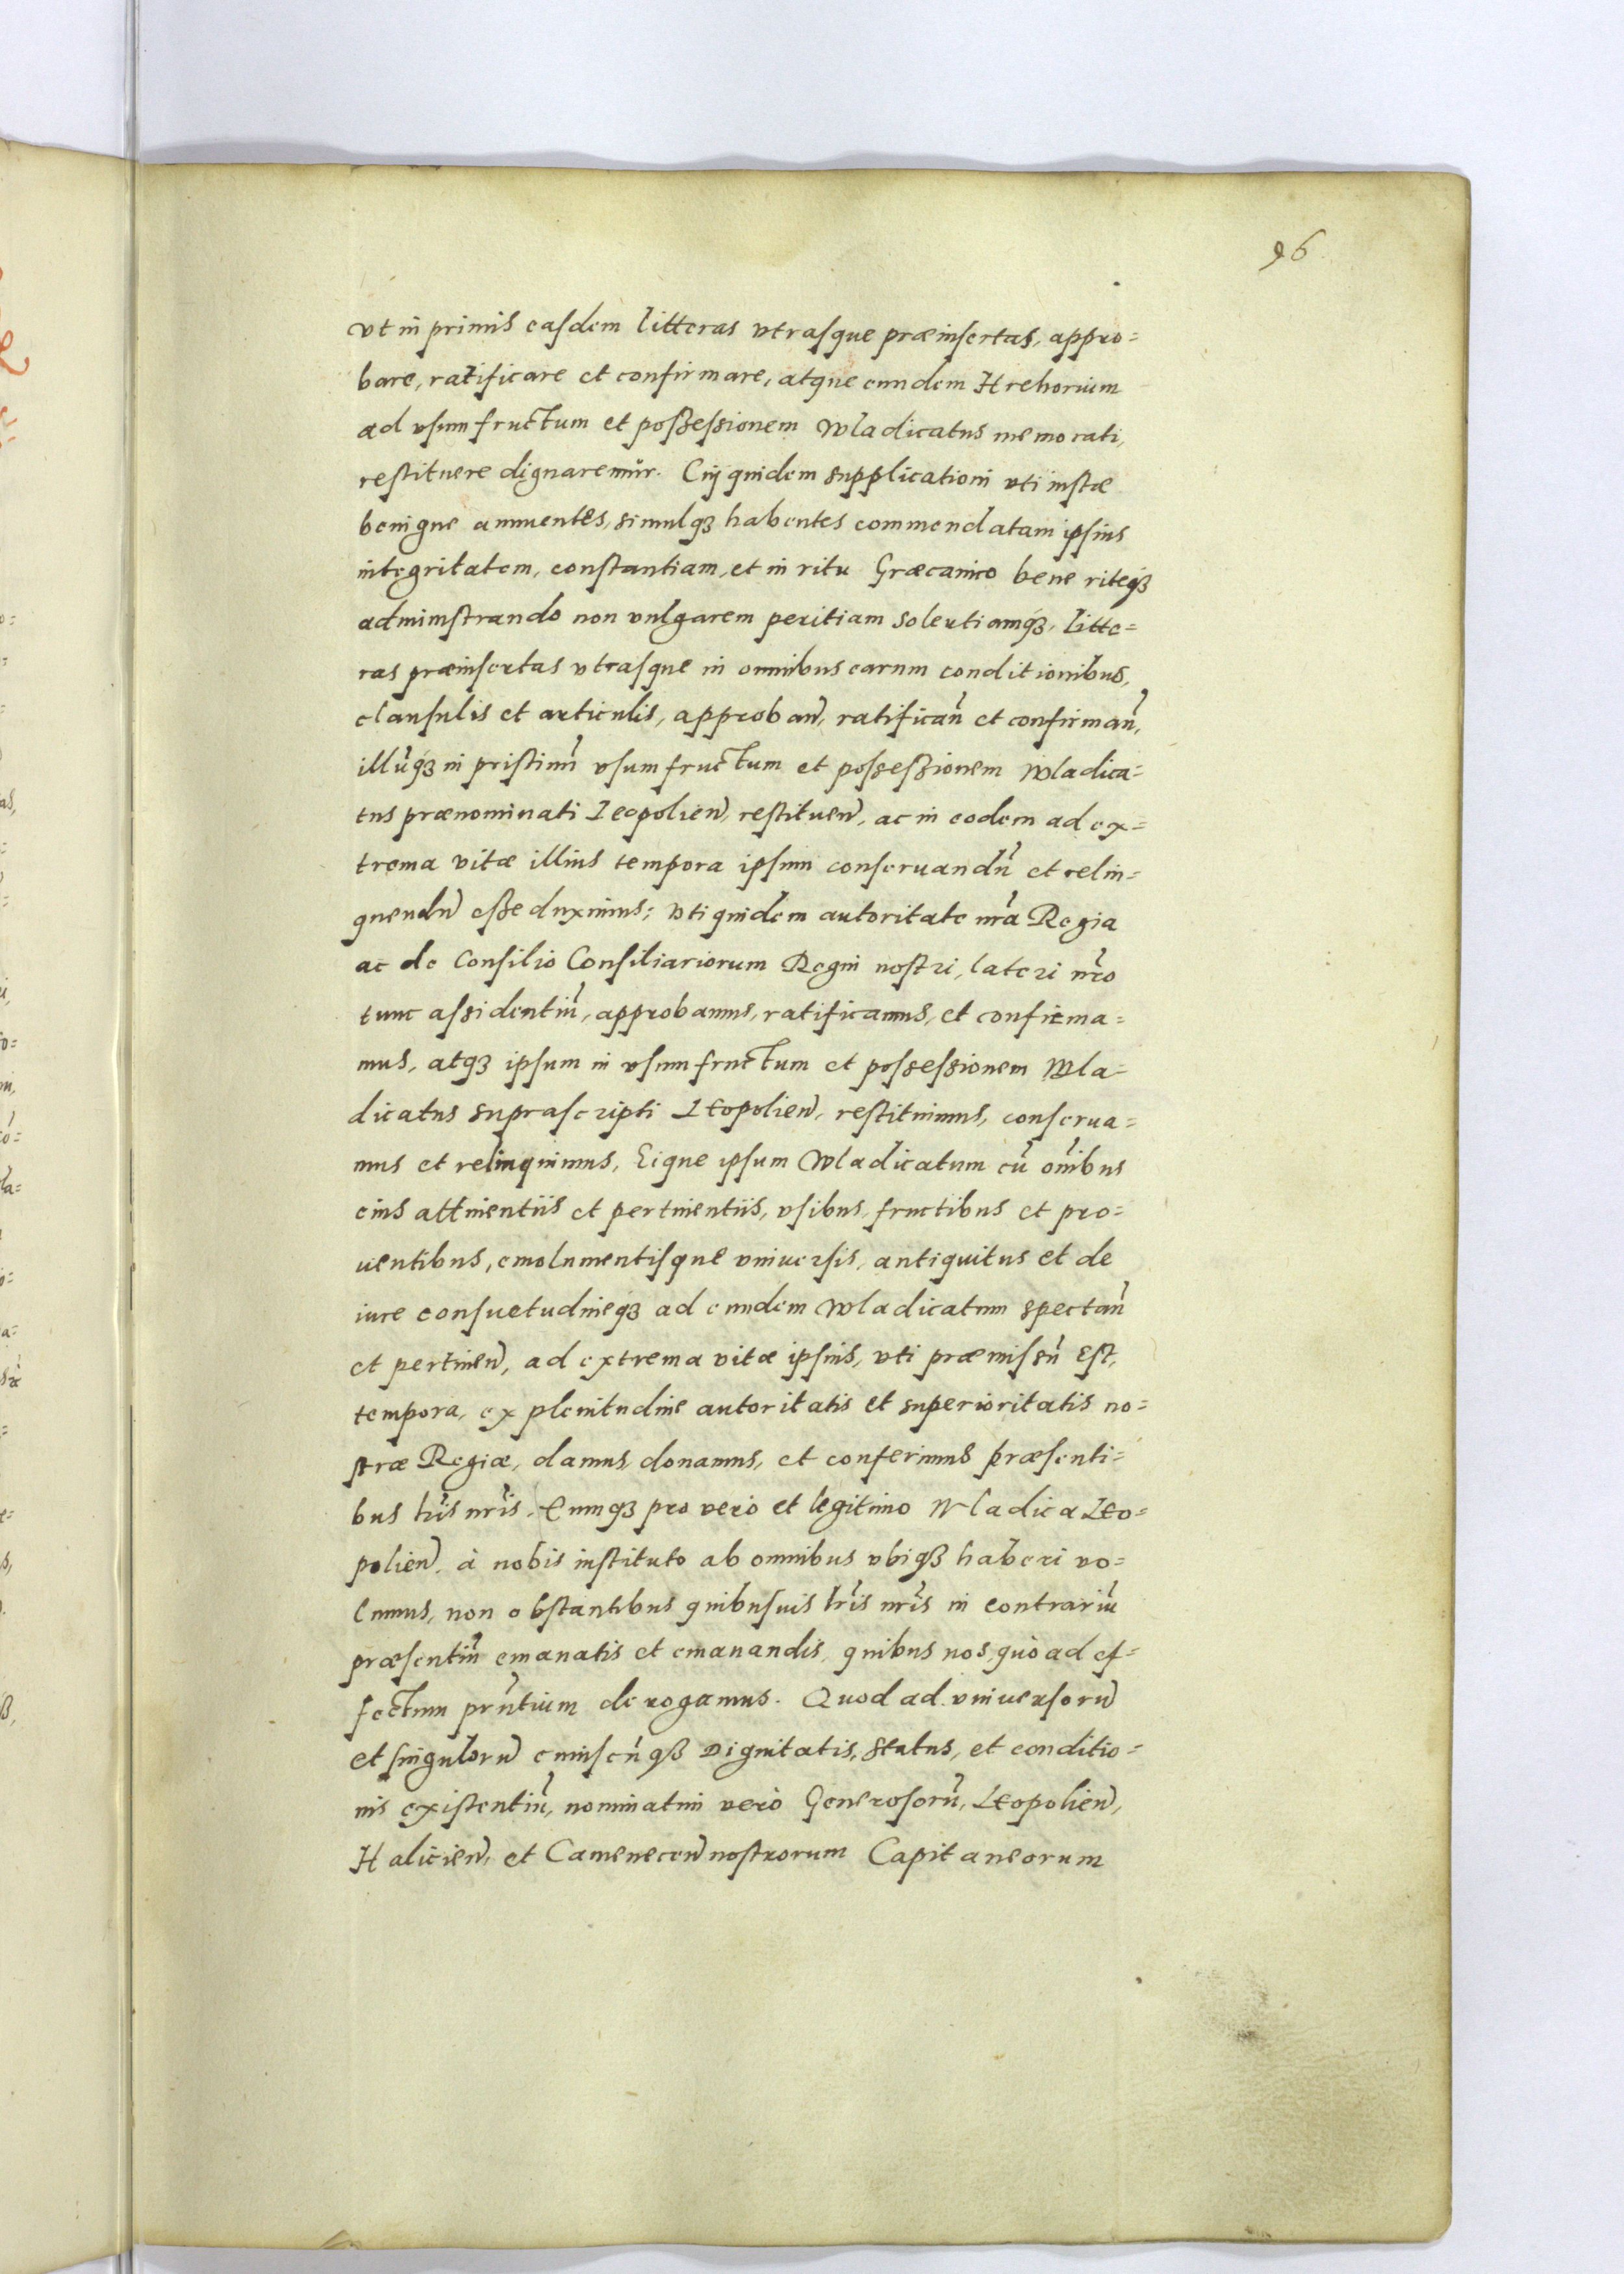 96
vt in primis easdem litteras vtrasque præinsertas, appro=
bare, ratificare et confirmare, atque eundem Hrehorium
ad vsumfructum et possessionem Wladicatus memorati,
restituere dignaremur. Cuj quidem supplicationi vti iustæ
benigne annuentes, simulqȝ habentes commendatam ipsius
integritatem, constantiam, et in ritu Græcanico bene riteqȝ
administrando non vulgarem peritiam solertiamqȝ, litte=
ras præinsertas vtrasque in omnibus earum conditionibus,
clausulis et articulis, approban̄, ratifican̄ et confirman̄,
illūqȝ in pristinū vsumfructum et possessionem Wladica=
tus prænominati Leopolien̄, restituen̄, ac in eodem ad ex=
trema vitæ illius tempora ipsum conseruandū et relin=
quendū esse duximus; Vti quidem autoritate nr̄a Regia
ac de Consilio Consiliariorum Regni nostri, lateri nr̄o
tunc assidentiū, approbamus, ratificamus, et confirma=
mus, atqȝ ipsum in vsumfructum et possessionem Wla=
dicatus suprascripti Leopolien̄, restituimus, conserua=
mus et relinquimus, Eique ipsum Wladicatum cū om̄ibus
eius attinentiis et pertinentiis, vsibus, fructibus et pro=
uentibus, emolumentisque vniuersis, antiquitus et de
iure consuetudineqȝ ad eundem Wladicatum spectan̄
et pertinen̄, ad extrema vitæ ipsius, vti præmissū est,
tempora, ex plenitudine autoritatis et superioritatis no=
stræ Regiæ, damus, donamus, et conferimus præsenti=
bus lr̄is nr̄is. Eumqȝ pro vero et legitimo Wladica Leo=
polien̄. à nobis instituto ab omnibus vbiqȝ haberi vo=
lumus, non obstantibus quibusuis lr̄is nr̄is in contrariū
præsentiū emanatis et emanandis, quibus nos, quò ad ef=
fectum pn̄tium derogamus. Quod ad vniuersorū
et singulorū cuiuscūqȝ Dignitatis, status, et conditio=
nis existentiū, nominatim verò Generosorū, Leopolien̄,
Halicien̄, et Camenecen̄ nostrorum Capitaneorum